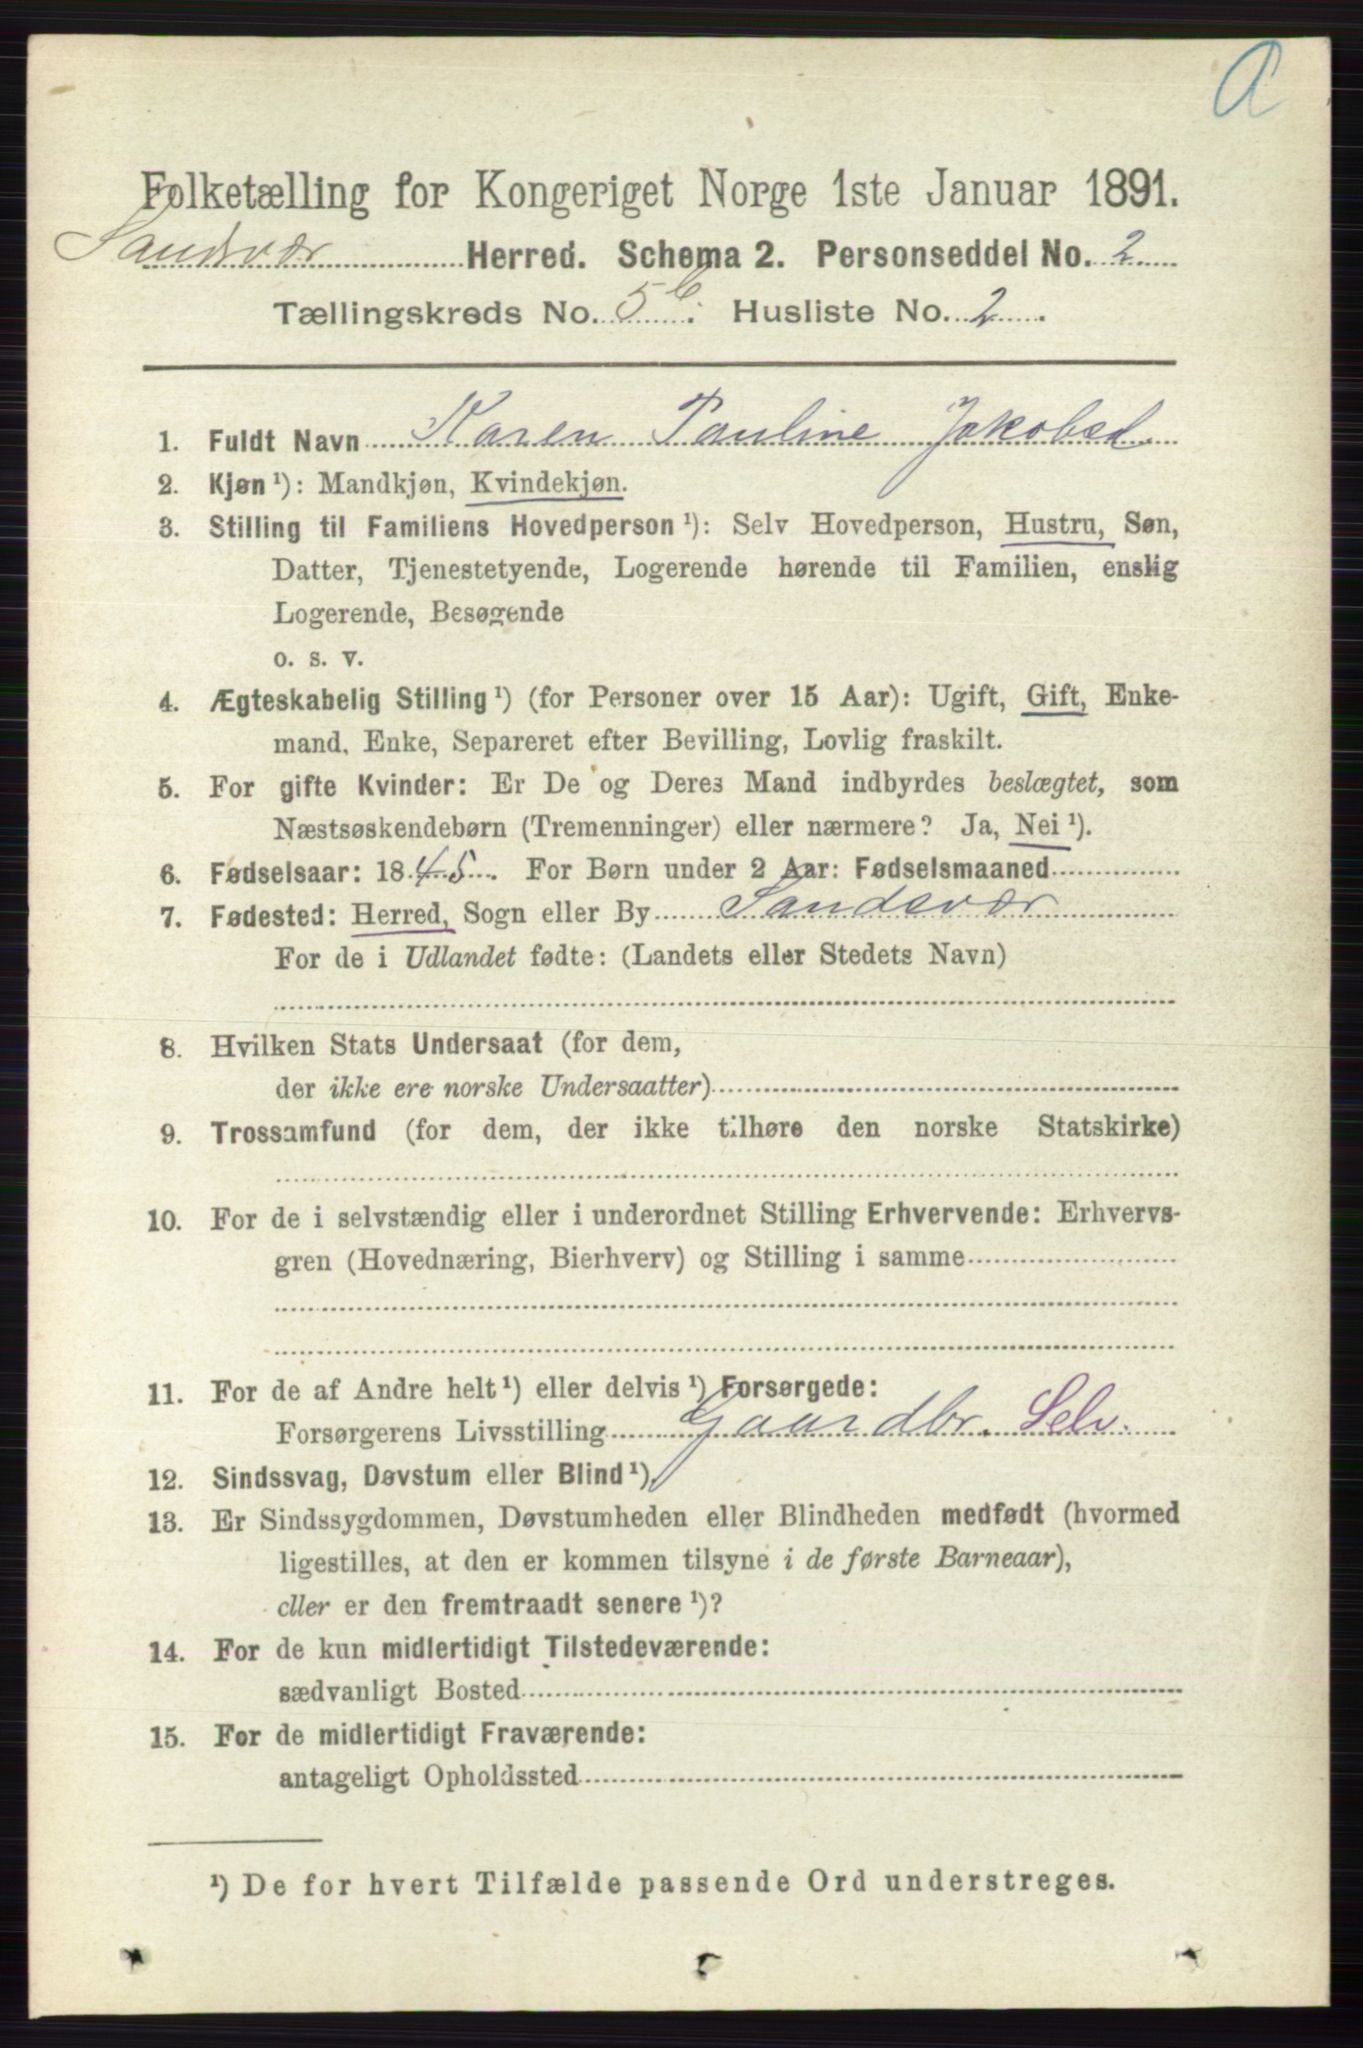 a
Folketælling for Kongeriget Norge 1ste Januar 1891.
Sandsvær Herred. Schema 2. Personseddel No. 2
Tællingskreds No. 5 b. Husliste No. 2
1. Fuldt Navn Karen Pauline Jakobsd
2. Kjøn ¹): Mandkjøn, Kvindekjøn.
3. Stilling til Familiens Hovedperson ¹): Selv Hovedperson, Hustru, Søn,
Datter, Tjenestetyende, Logerende hørende til Familien, enslig
Logerende, Besøgende
o. s. v.
4. Ægteskabelig Stilling ¹) (for Personer over 15 Aar): Ugift, Gift, Enke-
mand, Enke, Separeret efter Bevilling, Lovlig fraskilt.
5. For gifte Kvinder: Er De og Deres Mand indbyrdes beslægtet, som
Næstsøskendebørn (Tremenninger) eller nærmere? Ja, Nei ¹).
6. Fødselsaar: 1845. For Børn under 2 Aar: Fødselsmaaned
7. Fødested: Herred, Sogn eller By Sandsvær
For de i Udlandet fødte: (Landets eller Stedets Navn)
8. Hvilken Stats Undersaat (for dem,
der ikke ere norske Undersaatter)
9. Trossamfund (for dem, der ikke tilhøre den norske Statskirke)
10. For de i selvstændig eller i underordnet Stilling Erhvervende: Erhvervs-
gren (Hovednæring, Bierhverv) og Stilling i samme
11. For de af Andre helt ¹) eller delvis ¹) Forsørgede:
Forsørgerens Livsstilling Gaardbr. Selv.
12. Sindssvag, Døvstum eller Blind ¹).
13. Er Sindssygdommen, Døvstumheden eller Blindheden medfødt (hvormed
ligestilles, at den er kommen tilsyne i de første Barneaar),
eller er den fremtraadt senere ¹)?
14. For de kun midlertidigt Tilstedeværende:
sædvanligt Bosted
15. For de midlertidigt Fraværende:
antageligt Opholdssted
¹) De for hvert Tilfælde passende Ord understreges.